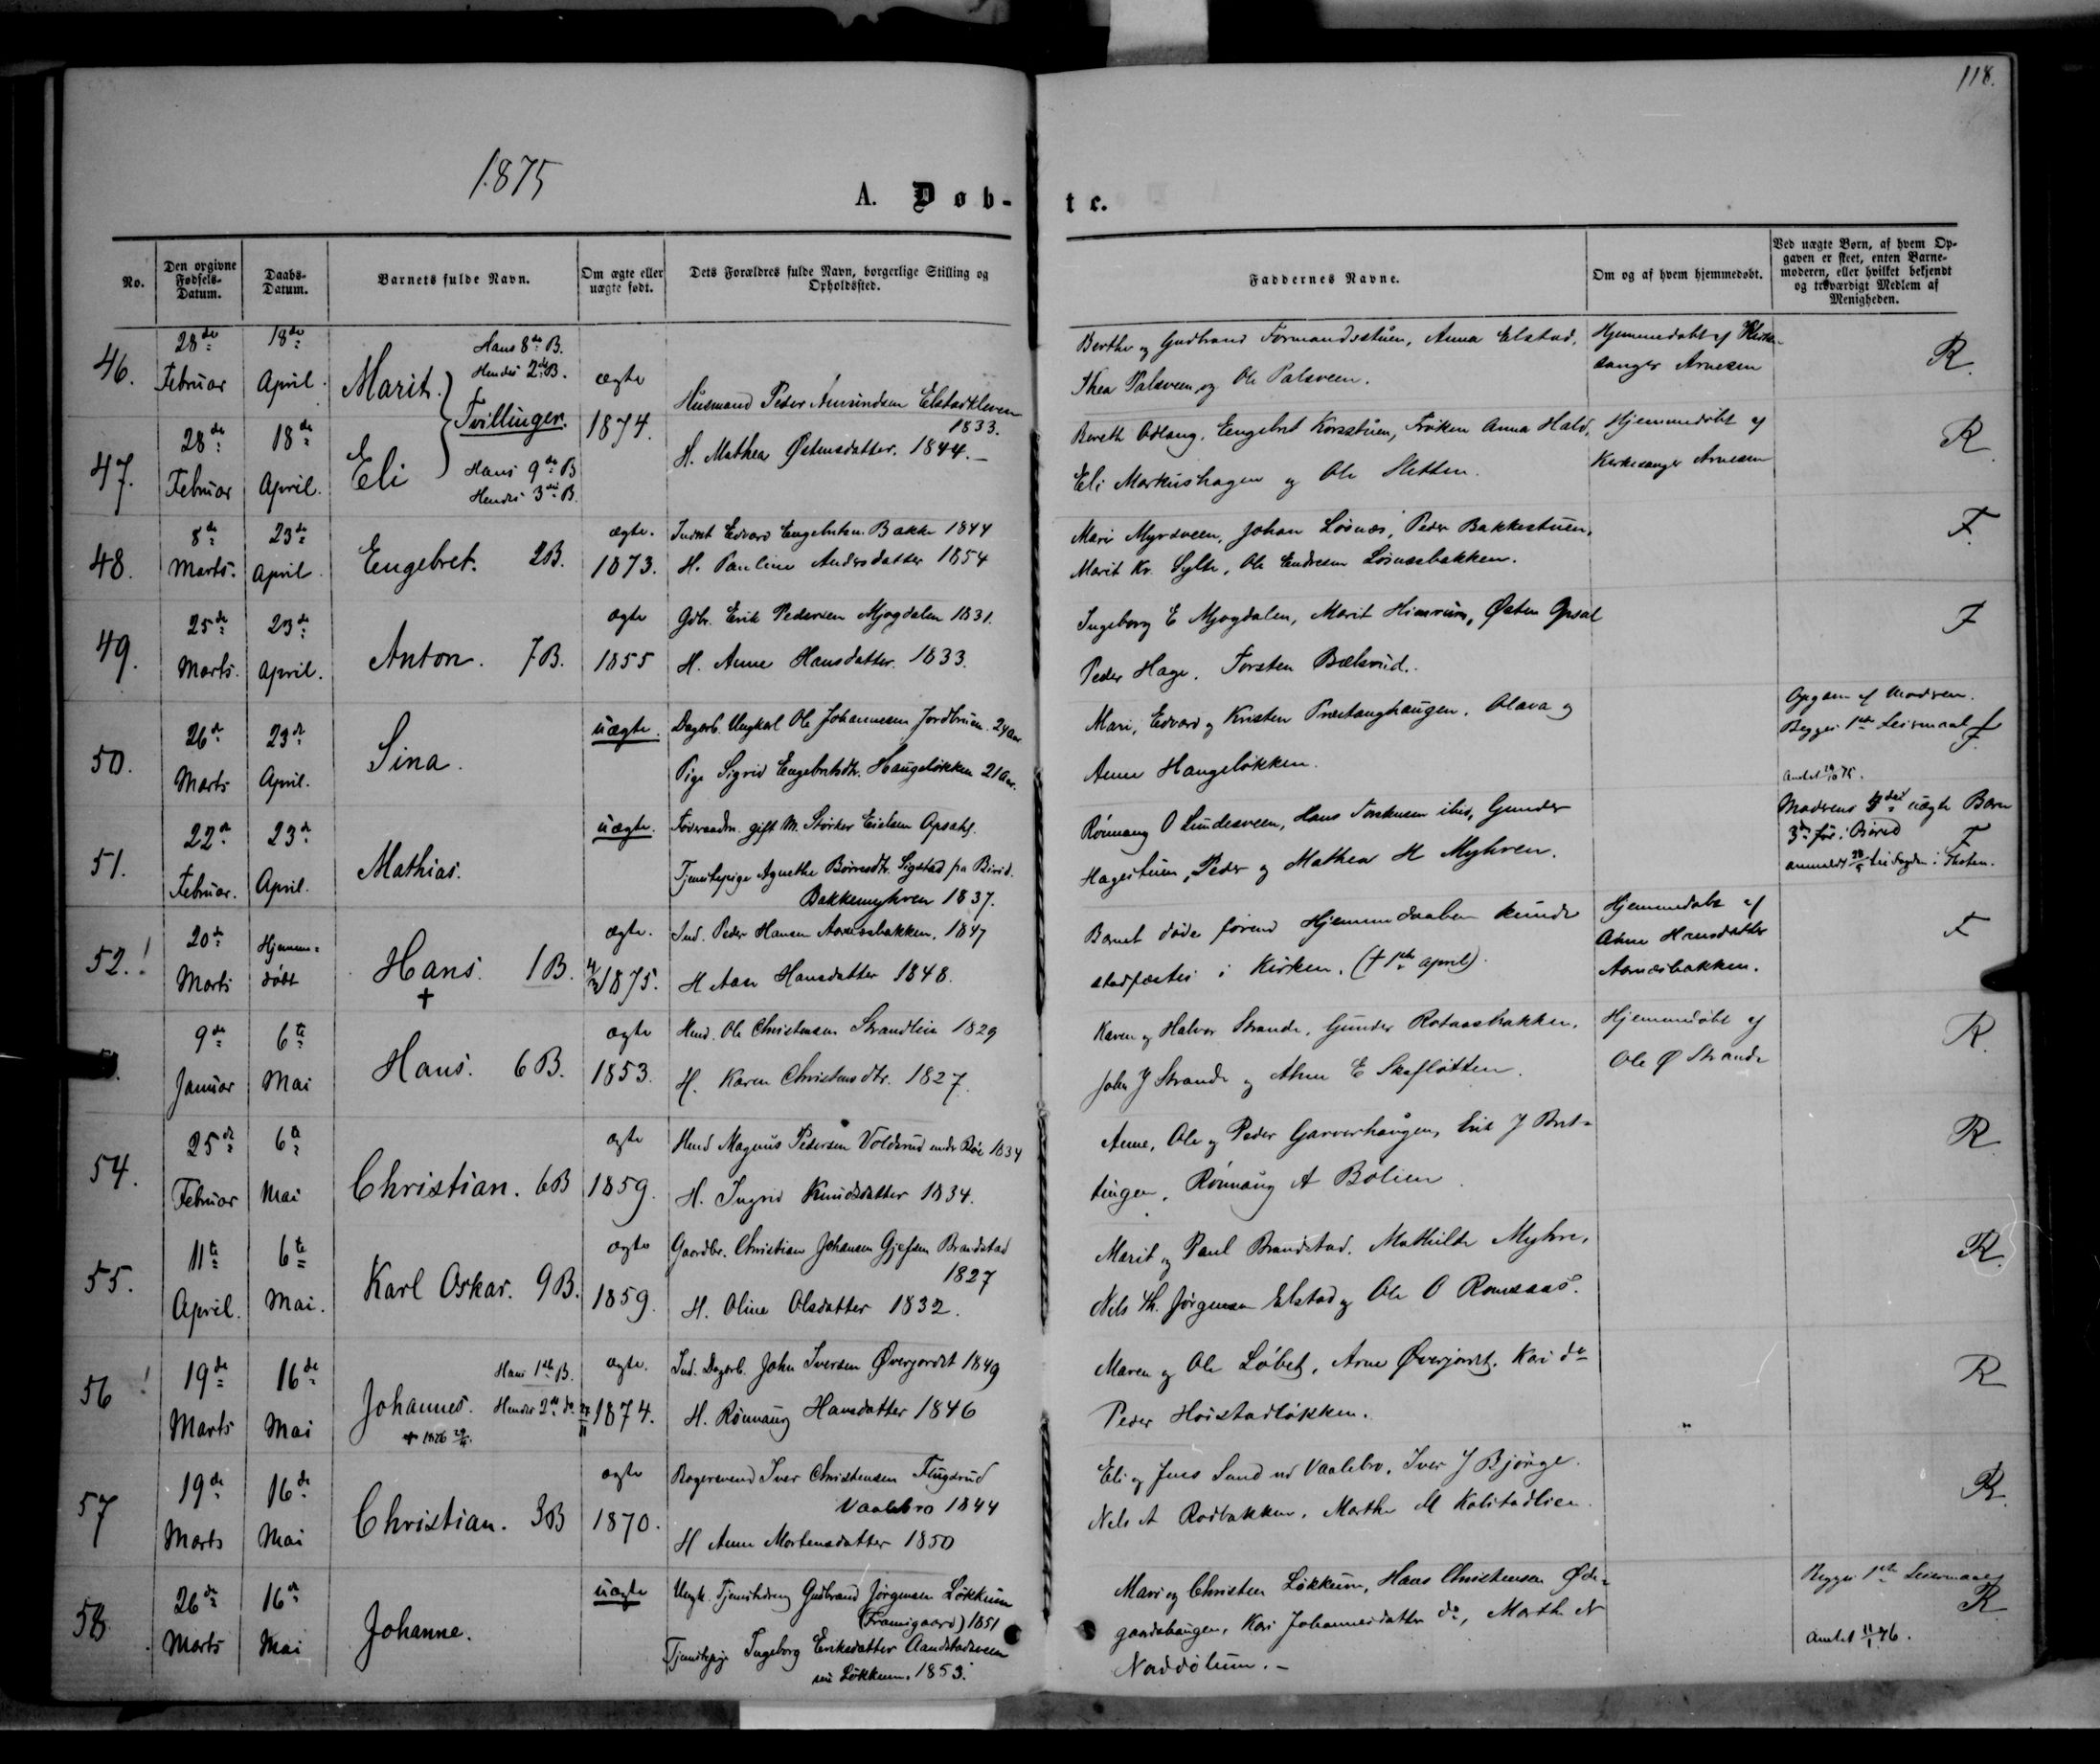 118.
1875
A. Døb-
te.
No.
Den opgivne Fødsels-Datum.
Daabs-Datum.
Barnets fulde Navn.
Om ægte eller uægte født.
Dets Forældres fulde Navn, borgerlige Stilling og Opholdssted.
Faddernes Navne.
Om og af hvem hjemmedøbt.
Ved uægte Børn, af hvem Opgaven er skeet, enten Barnemoderen, eller hvilket bekjendt og troværdigt Medlem af Menigheden.
46. 28de Februar 18de April. Marit. Hans 8de B. Hendes 2det B. ægte
Tvillinger. 1874. Husmand Peder Amundsen Elstadkleven 1833.
H. Mathea Østensdatter. 1844.
Berthe og Gudbrand Formandsstuen, Anna Elstad,
Thea Palsveen og Ole Palsveen.
Hjemmedøbt af Kirke-
sanger Arnesen
R.
47. 28de Februar 18de April. Eli Hans 9de B Hendes 3die B.
Bereth Odlang, Engebret Korsstuen, Frøken Anna Hald,
Eli Markushagen og Ole Sletten.
Hjemmedøbt af
Kirkesanger Arnesen
R
48. 8de Marts. 23de April Engebret. 2B. ægte. 1873.
Inderst Edvard Engebretsen Bakke 1844
H. Pauline Andersdatter 1854
Mari Myrsveen, Johan Losnæs, Peder Bakkestuen,
Marit Kr. Sylte, Ole Endresen Losnæsbakken.
F.
49. 25de Marts. 23de April. Anton. 7B. ægte 1855
Gdbr. Erik Pedersen Mjogdalen 1831.
H. Anne Hansdatter. 1833.
Ingeborg E Mjogdalen, Marit Himrum, Østen Opsal
Peder Hage. Torsten Bælsvud.
F
50. 26de Marts 23de April. Sina. uægte.
Dagarb. Ungkarl Ole Johannesen Jordbruen. 24 Aar
Pige Sigrid Engebretsdtr. Haugeløkken 21 Aar.
Mari, Edvard og Kristen Præstanghaugen. Olava og
Anne Haugeløkken.
Opgave af Moderen.
Begges 1ste Leiermaal F
51. 22de Februar. 23de April. Mathias. uægte.
Føderaadm. gift M. Størker Eielsen Opsahl.
Tjenestepige Agnethe Børresdtr. Sigstad fra Birid.
Bakkemyhren 1837.
Rønnaug O Lundesveen, Hans Torstensen ibid, Gunder
Hagestuen, Peder og Mathea H Myhren.
Moderens uægte Barn
F
52.! 20de Marts Hjemme-
døbt Hans. † 1B. ægte. 1875.
Ind. Peder Hansen Aarnæsbakken. 1847
H Aase Hansdatter 1848.
Barnet døde førend Hjemmedaaben kunde
stadfæstes i Kirken. († 1ste april).
Hjemmedøbt af
Anne Hansdatter
Aarnæsbakken.
F
9de Januar 6te Mai Hans. 6B. ægte 1853.
Husd. Ole Christensen Strandlien 1829
H. Karen Christensdtr. 1827.
Karen og Halvor Strande, Gunder Rotaasbakken,
John J Strande og Anne E Skafløtten.
Hjemmedøbt af
Ole Ø Strande
R.
54. 25de Februar 6te Mai Christian. 6B ægte 1859.
Husd Magnus Pedersen Voldsrud under Røe 1834
H. Ingrid Knudsdatter 1834.
Anne, Ole og Peder Garverhaugen, Eric J Bret-
tingen, Rønnaug A Bølien.
R
55. 11te April. 6te Mai. Karl Oskar. 9B. ægte 1859.
Gaardbr. Christian Johansen Gjefsen Brandstad 1827
H. Oline Olsdatter 1832.
Marit og Paul Brandstad. Mathilde Myhre,
Nels Th. Jørgensen Elstad og Ole O Romsaas.
R.
56! 19de Marts 16de Mai Johannes. Hans 1ste B. Hendes 2de do. ægte. 1874.
Ind. Dagarb. John Iversen Øverjordet 1849
H. Rønnaug Hansdatter 1846
Maren og Ole Løbet, Arne Øverjordet, Kari do
Peder Høistadløkken.
"
R
57 19de Marts 16de Mai Christian. 3B ægte 1870.
Bagersvend Iver Christensen Flugsrud
Vaalebro 1844
H Anne Mortensdatter 1850
Eli og Jens Sund ved Vaalebro, Iver J Bjørge.
Nels A Rodbakken, Marthe M Kolstadlien.
R.
58 26de Marts 16de Mai Johanne. uægte
Ungk. Tjenestedreng Gudbrand Jørgensen Løkkum
(Framigaard) 1851
Tjenestepige Ingeborg Eriksdatter Aandstadsveen
Løkkum. 1853.
Mari og Christen Løkkum, Hans Christensen Øde-
gaardshaugen, Kari Johannesdatter do, Marthe N
Norddølum.
Begges 1ste Leiermaal
R
Anmeldt 11/1 76.